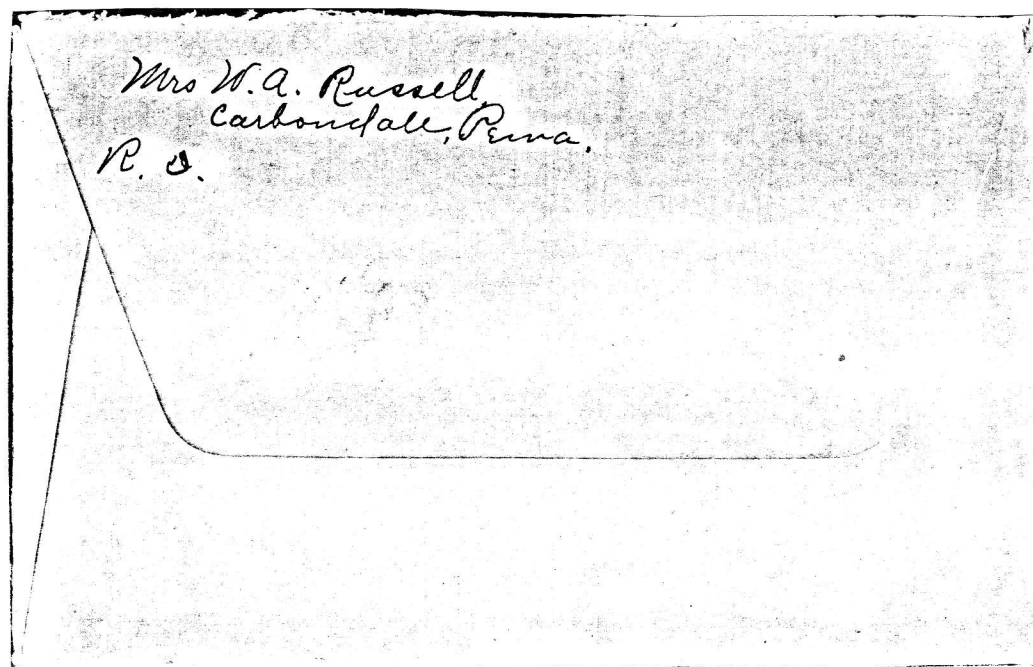 Mrs W. A. Russell,
Carbondale, Penna,
R. D.